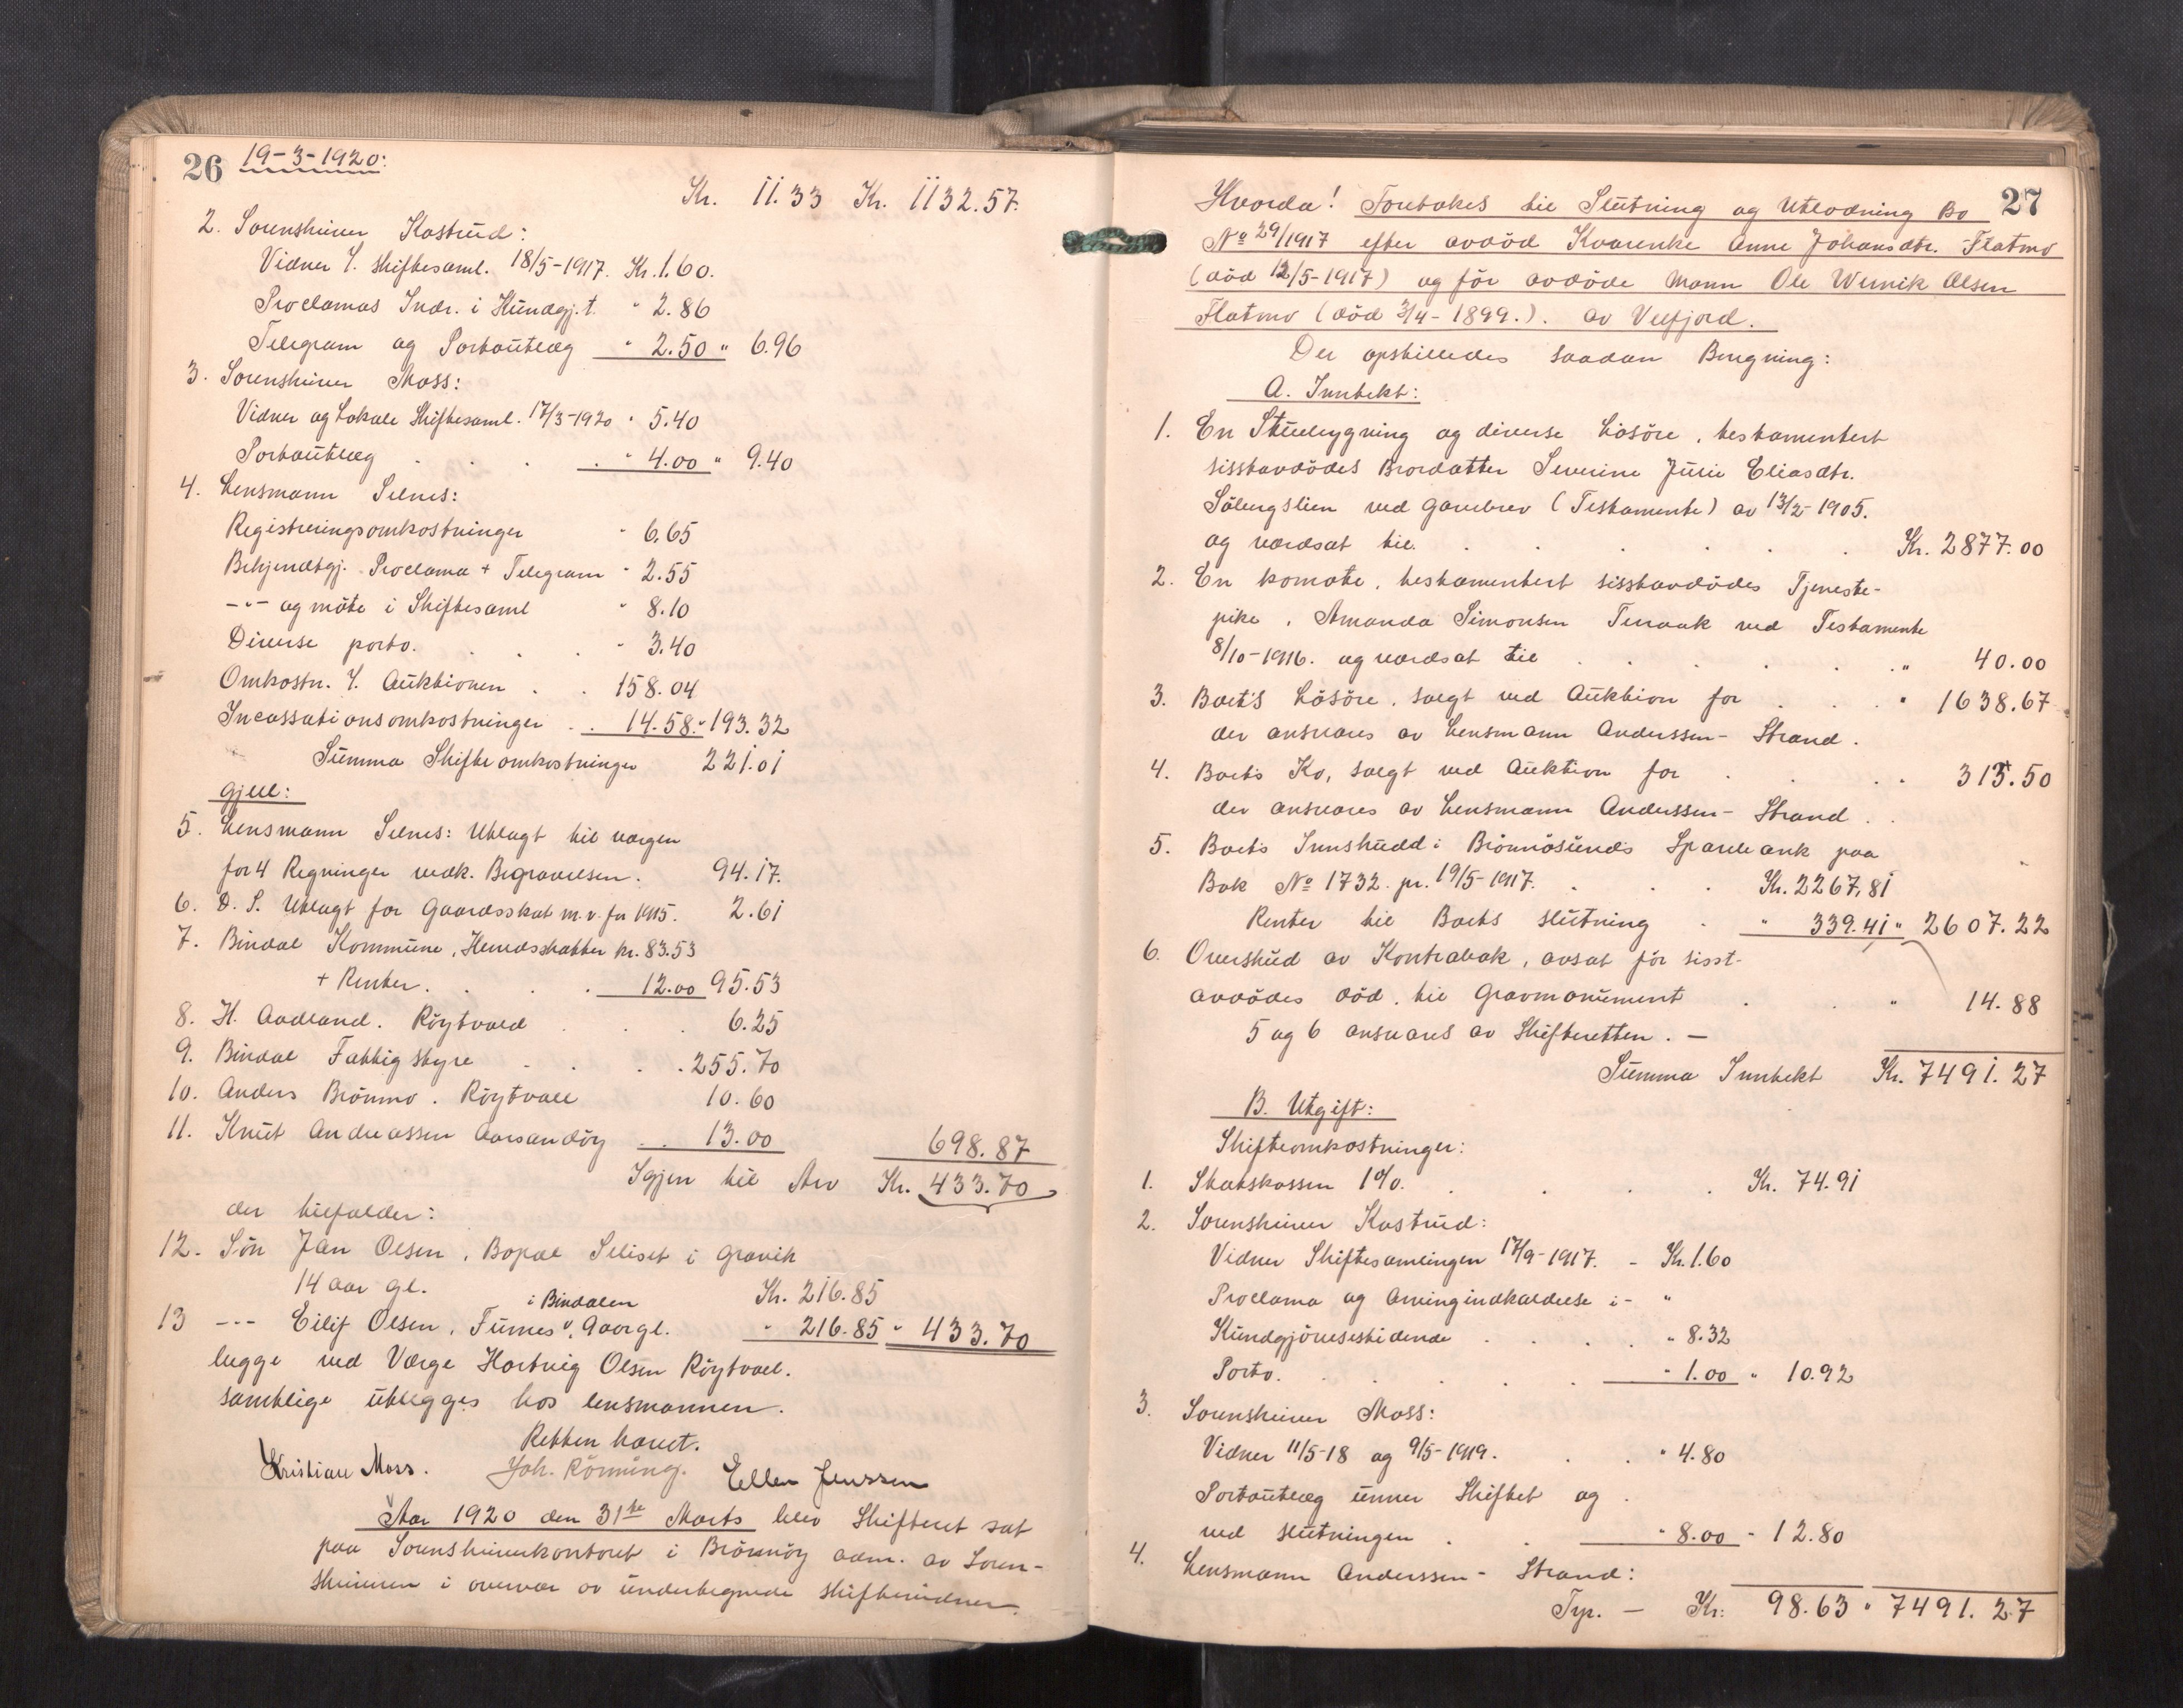 26 19-3-1920:
Kr. 11.33 Kr. 1132.57.
2. Sorenskriver Kostrud:
Vidner t. skiftesaml. 18/5-1917. Kr. 1.60.
Proclamas Indr. i Kundgj.t. " 2.86
Telegram og Portoutlæg " 2.50 " 6.96
3. Sorenskriver Moss:
Vidner og Lokale Skiftesaml. 17/3-1920 " 5.40
Portoutlæg . . . " 4.00 " 9.40
4. Lensmann Selnes:
Registreringsomkostninger " 6.65
Bekjendtgj. Proclama + Telegram " 2.55
-"- og möte i Skiftesaml " 8.10
Diverse porto. . . . " 3.40
Omkostn. t. Auktionen . . 158.04
Incassationsomkostninger . . 14.58. " 193.32
Summa Skifteomkostninger 221.01
Gjeld:
5. Lensmann Selnes: Utlagt til værgen
for 4 Regninger vedk. Begravelsen. 94.17.
6. D. S. Utlagt for Gaardsskat m.v. for 1915. 2.61
7. Bindal Kommune, Herredsskatter kr. 83.53
+ Renter. . . . 12.00 95.53
8. H. Aadland. Röytvold . . . 6.25
9. Bindal Fattigstyre . . . . 255.70
10. Anders Brönmo. Röytvoll 10.60
11. Knut Andreassen Aarsandöy . . 13.00 698.87
Igjen til Arv Kr. 433.70
der tilfalder:
12. Sön Jan Olsen, Bopæl Seliset i Gravik
14 aar gl. Kr. 216.85
13 -"- Eilif Olsen, Fuines i Bindalen, 9 aar gl. " 216.85 " 433.70
begge ved Værge Hartvig Olsen Röytvoll.
samtlige utlegges hos lensmannen.
Retten hævet.
Kristian Moss. Joh. Rönning. Ellen Jenssen
Aar 1920 den 31te Marts blev Skifteret sat
paa Sorenskriverkontoret i Brönnöy adm. av Soren-
skriveren i overvær av undertegnede skiftevidner.
27
Hvorda! Foretokes til Slutning og Utlodning Bo
No 29/1917 efter avdöd Kvarenke Anne Johansdtr. Flatmo
(död 12/5-1917) og för avdöde mann Ole Wernik Olsen
Flatmo (död 3/4-1899.). av Velfjord.
Der opstilledes saadan Beregning:
A. Inntekt:
1. En Stuebygning og diverse Lösöre, testamentert
sisstavdödes Brordatter Severine Julie Eliasdtr.
Sölengslien ved Gavebrev (Testamente) av 13/2-1905.
og værdsat til . . . . . . . Kr. 2877.00
2. En komode, testamentert sisstavdödes Tjeneste-
pike, Amanda Simonsen Terraak ved Testamente
8/10-1916. og værdsat til . . . . . " 40.00
3. Boets Lösöre, solgt ved Auktion for . . . " 1638.67
der ansvares av Lensmann Anderssen-Strand.
4. Boets Ko, solgt ved Auktion for . . . . 313.50
der ansvares av Lensmann Anderssen-Strand . .
5. Boets Innskudd i Brönnösunds Sparebank paa
Bok No 1732. pr. 19/5-1917. . . . Kr. 2267,81
Renter til Boets slutning . " 339.41 " 2607.22
6. Overskud av Kontrabok, avsat för sisst-
avdödes död, til Gravmonument . . " 14.88
5 og 6 ansvares av Skifteretten. —
Summa Inntekt Kr. 7491.27
B. Utgift:
Skifteomkostninger:
1. Statskassen 1%. . . . . Kr. 74.91
2. Sorenskriver Kostrud:
Vidner Skiftesamlingen 17/9-1917. - Kr. 1.60
Proclama og Arvingindkaldelse i - "
Kundgjörelsestidende . . . " 8.32
Porto. . . . . . " 1.00 " 10.92
3. Sorenskriver Moss:
Vidner 11/5-18 og 9/5-1919. . . " 4.80
Portoutlæg under Skiftet og .
ved slutningen . . " 8.00 " 12.80
4. Lensmann Anderssen-Strand:
Tr. — Kr: 98.63 " 7491.27